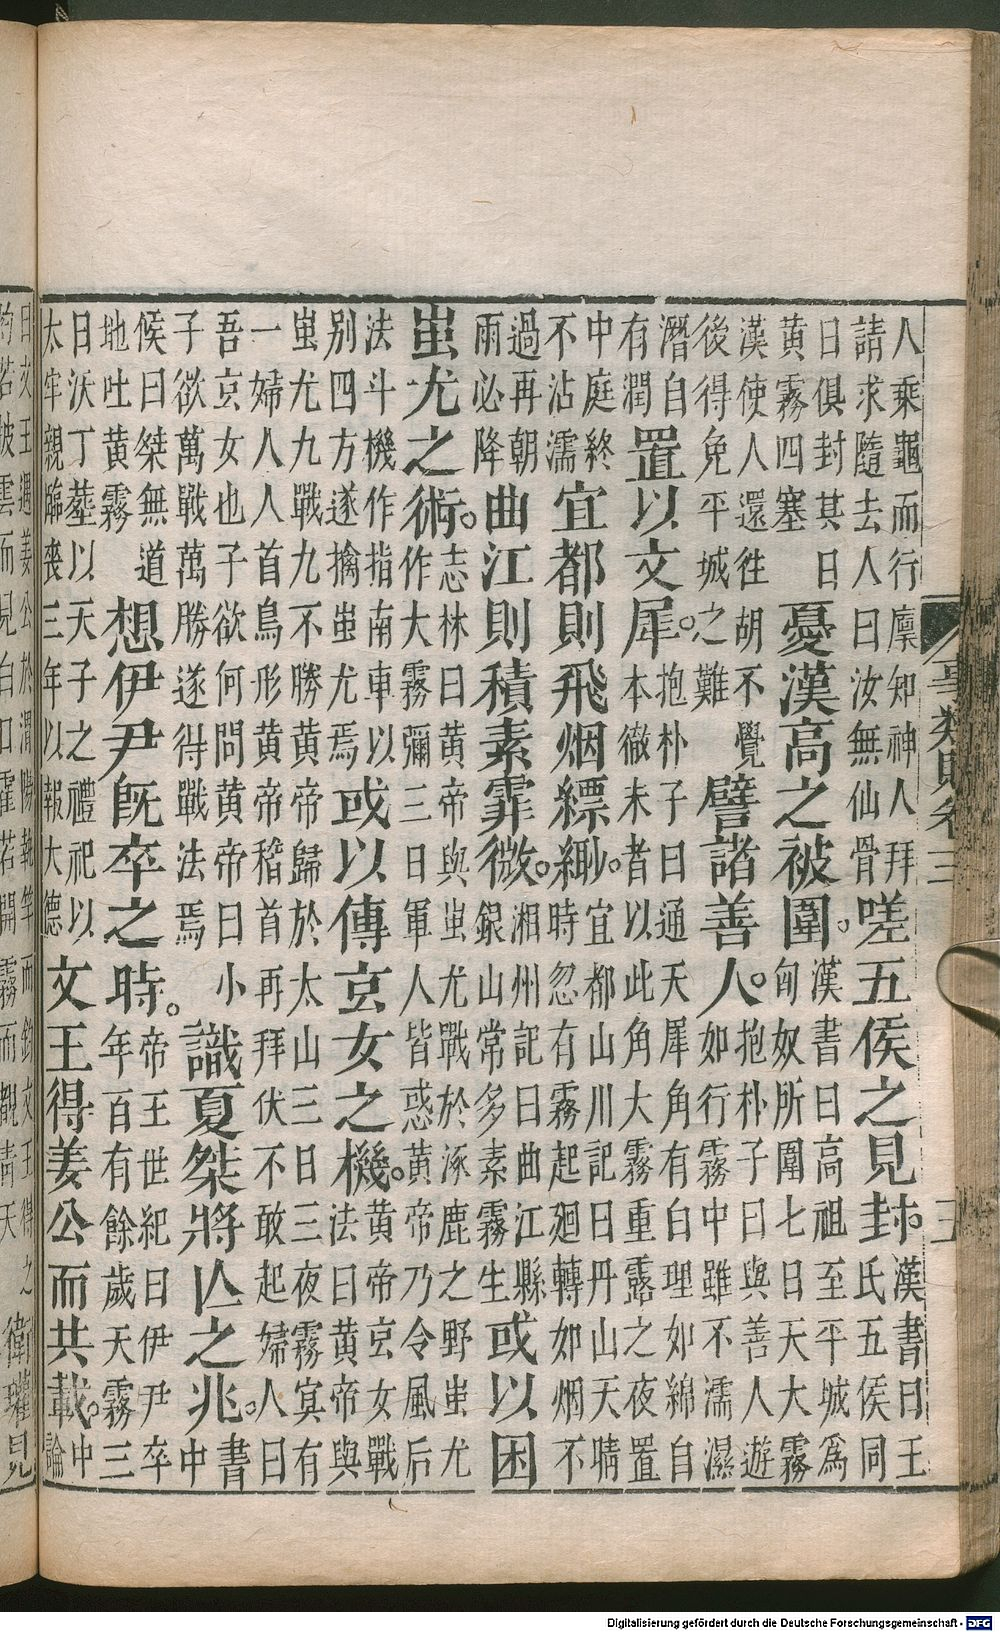 人乘龜而行廪知神人拜
請求隨去人曰汝無仙骨
嗟五侯之見封。
漢書曰王
氏五侯同
日俱封其日
黃霧四塞
憂漢高之被圍。
漢書曰高祖至平城爲
匈奴所圍七日天大霧
漢使人還徃胡不覺
後得免平城之難
譬諸善人。
抱朴子曰與善人遊
如行霧中雖不濡濕
潛自
有潤
置以文犀。
抱朴子曰通天犀角有白理如綿自
本徹未者以此角大霧重露之夜置
中庭終
不沾濡
宜都則飛烟縹緲。
宜都山川記曰丹山天晴
時忽有霧起廻轉如烟不
過再朝
雨必降
曲江則積素霏微。
湘州記曰曲江縣
銀山常多素霧生
或以困
蚩尤之術。
志林曰黃帝與蚩尤戰於涿鹿之野蚩尤
作大霧彌三日軍人皆惑黃帝乃令風后
法斗機作指南車以
別四方遂擒蚩尤焉
或以傳玄女之機。
黃帝玄女戰
法曰黃帝與
蚩尤九戰九不勝黃帝歸於太山三日三夜霧冥有
一婦人人首鳥形黃帝稽首再拜伏不敢起婦人曰
吾玄女也子欲何問黃帝曰小
子欲萬戰萬勝遂得戰法焉
識夏桀將亾之兆。
書
中
候曰桀無道
地吐黃霧
想伊尹旣卒之時。
帝王世紀曰伊尹卒
年百有餘歲天霧三
日沃丁葬以天子之禮祀以
太牢親臨喪三年以報大德
文王得姜公而共載。
中
論
曰文王遇姜公於渭陽執竿而釣文王得之
灼若披雲而見白日霍若開霧而覩靑天
衛瓘見
事類賦卷三
三
Digitalisierung gefördert durch die Deutsche Forschungsgemeinschaft - DFG